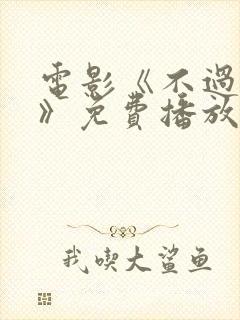 電影《不過
》免費播放
我喫大鯊鱼